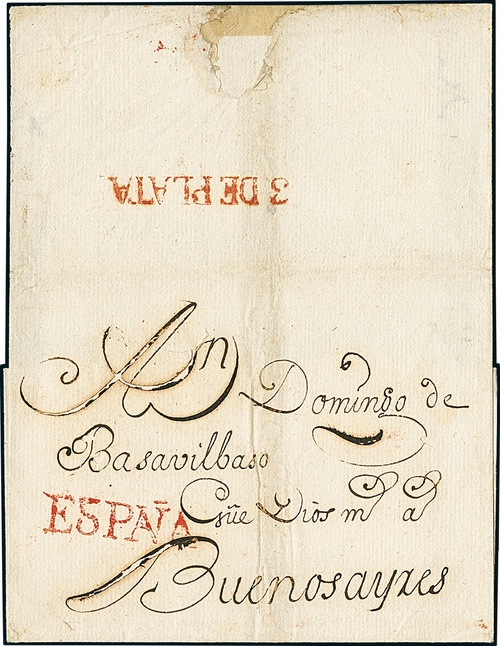 3 DE PLATA
A Dn Domingo de
Basavilbaso
ESPAÑA
Gũe Dios ms as
Buenosayres